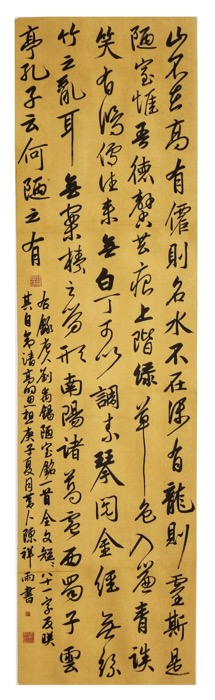 山不在高有僊則名水不在深有龍則靈斯是
陋室惟吾德馨苔痕上階綠草色入簾青談
笑有鴻儒往來無白丁可以調素琴閱金經無絲
竹之亂耳無案牘之勞形南陽諸葛廬西蜀子雲
亭孔子云何陋之有
右錄唐人劉禹錫陋室銘一首全文短〻八十一字反映
其自命清高的思想庚子夏月人陳祥雨書